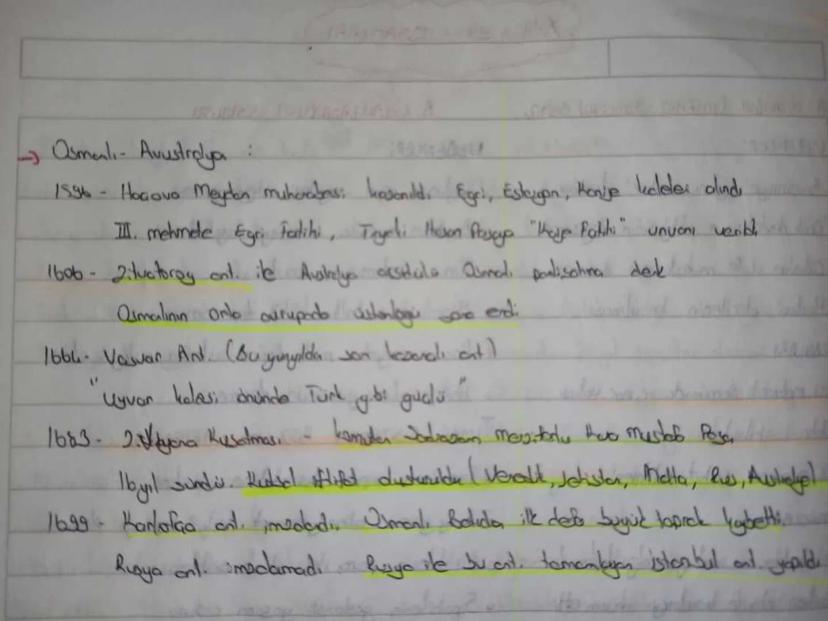 → Osmanlı - Avusturya :
1596 - Haçova Meydan muharebesi kazanıldı. Eğri, Estergon, Kanije kaleleri alındı
III. mehmete Eğri Fatihi, Tiryaki Hasan Paşaya "Kanije Fatihi" unvanı verildi
1606 - Zitvatorog ant. ile Avusturya arşidükü Osmanlı padişahına denk
Osmalının orta avrupada üstünlüğü sona erdi.
1664 - Vasvar Ant. (Bu yüzyılda son kazançlı ant)
"Uyvar kalesi önünde Türk gibi güçlü"
1683 - 2. Viyana Kuşatması - komutan Sadrazam merzifonlu Kara Mustafa Paşa,
16 yıl sürdü. Kutsal ittifak oluşturuldu (Venedik, Lehistan, Malta, Rus, Avusturya)
1699 - Karlofça ant. imzaladı. Osmanlı Batıda ilk defa büyük toprak kybetti.
Rusya ant. imzalamadı. Rusya ile bu ant. tamamlayan istanbul ant. yapıldı